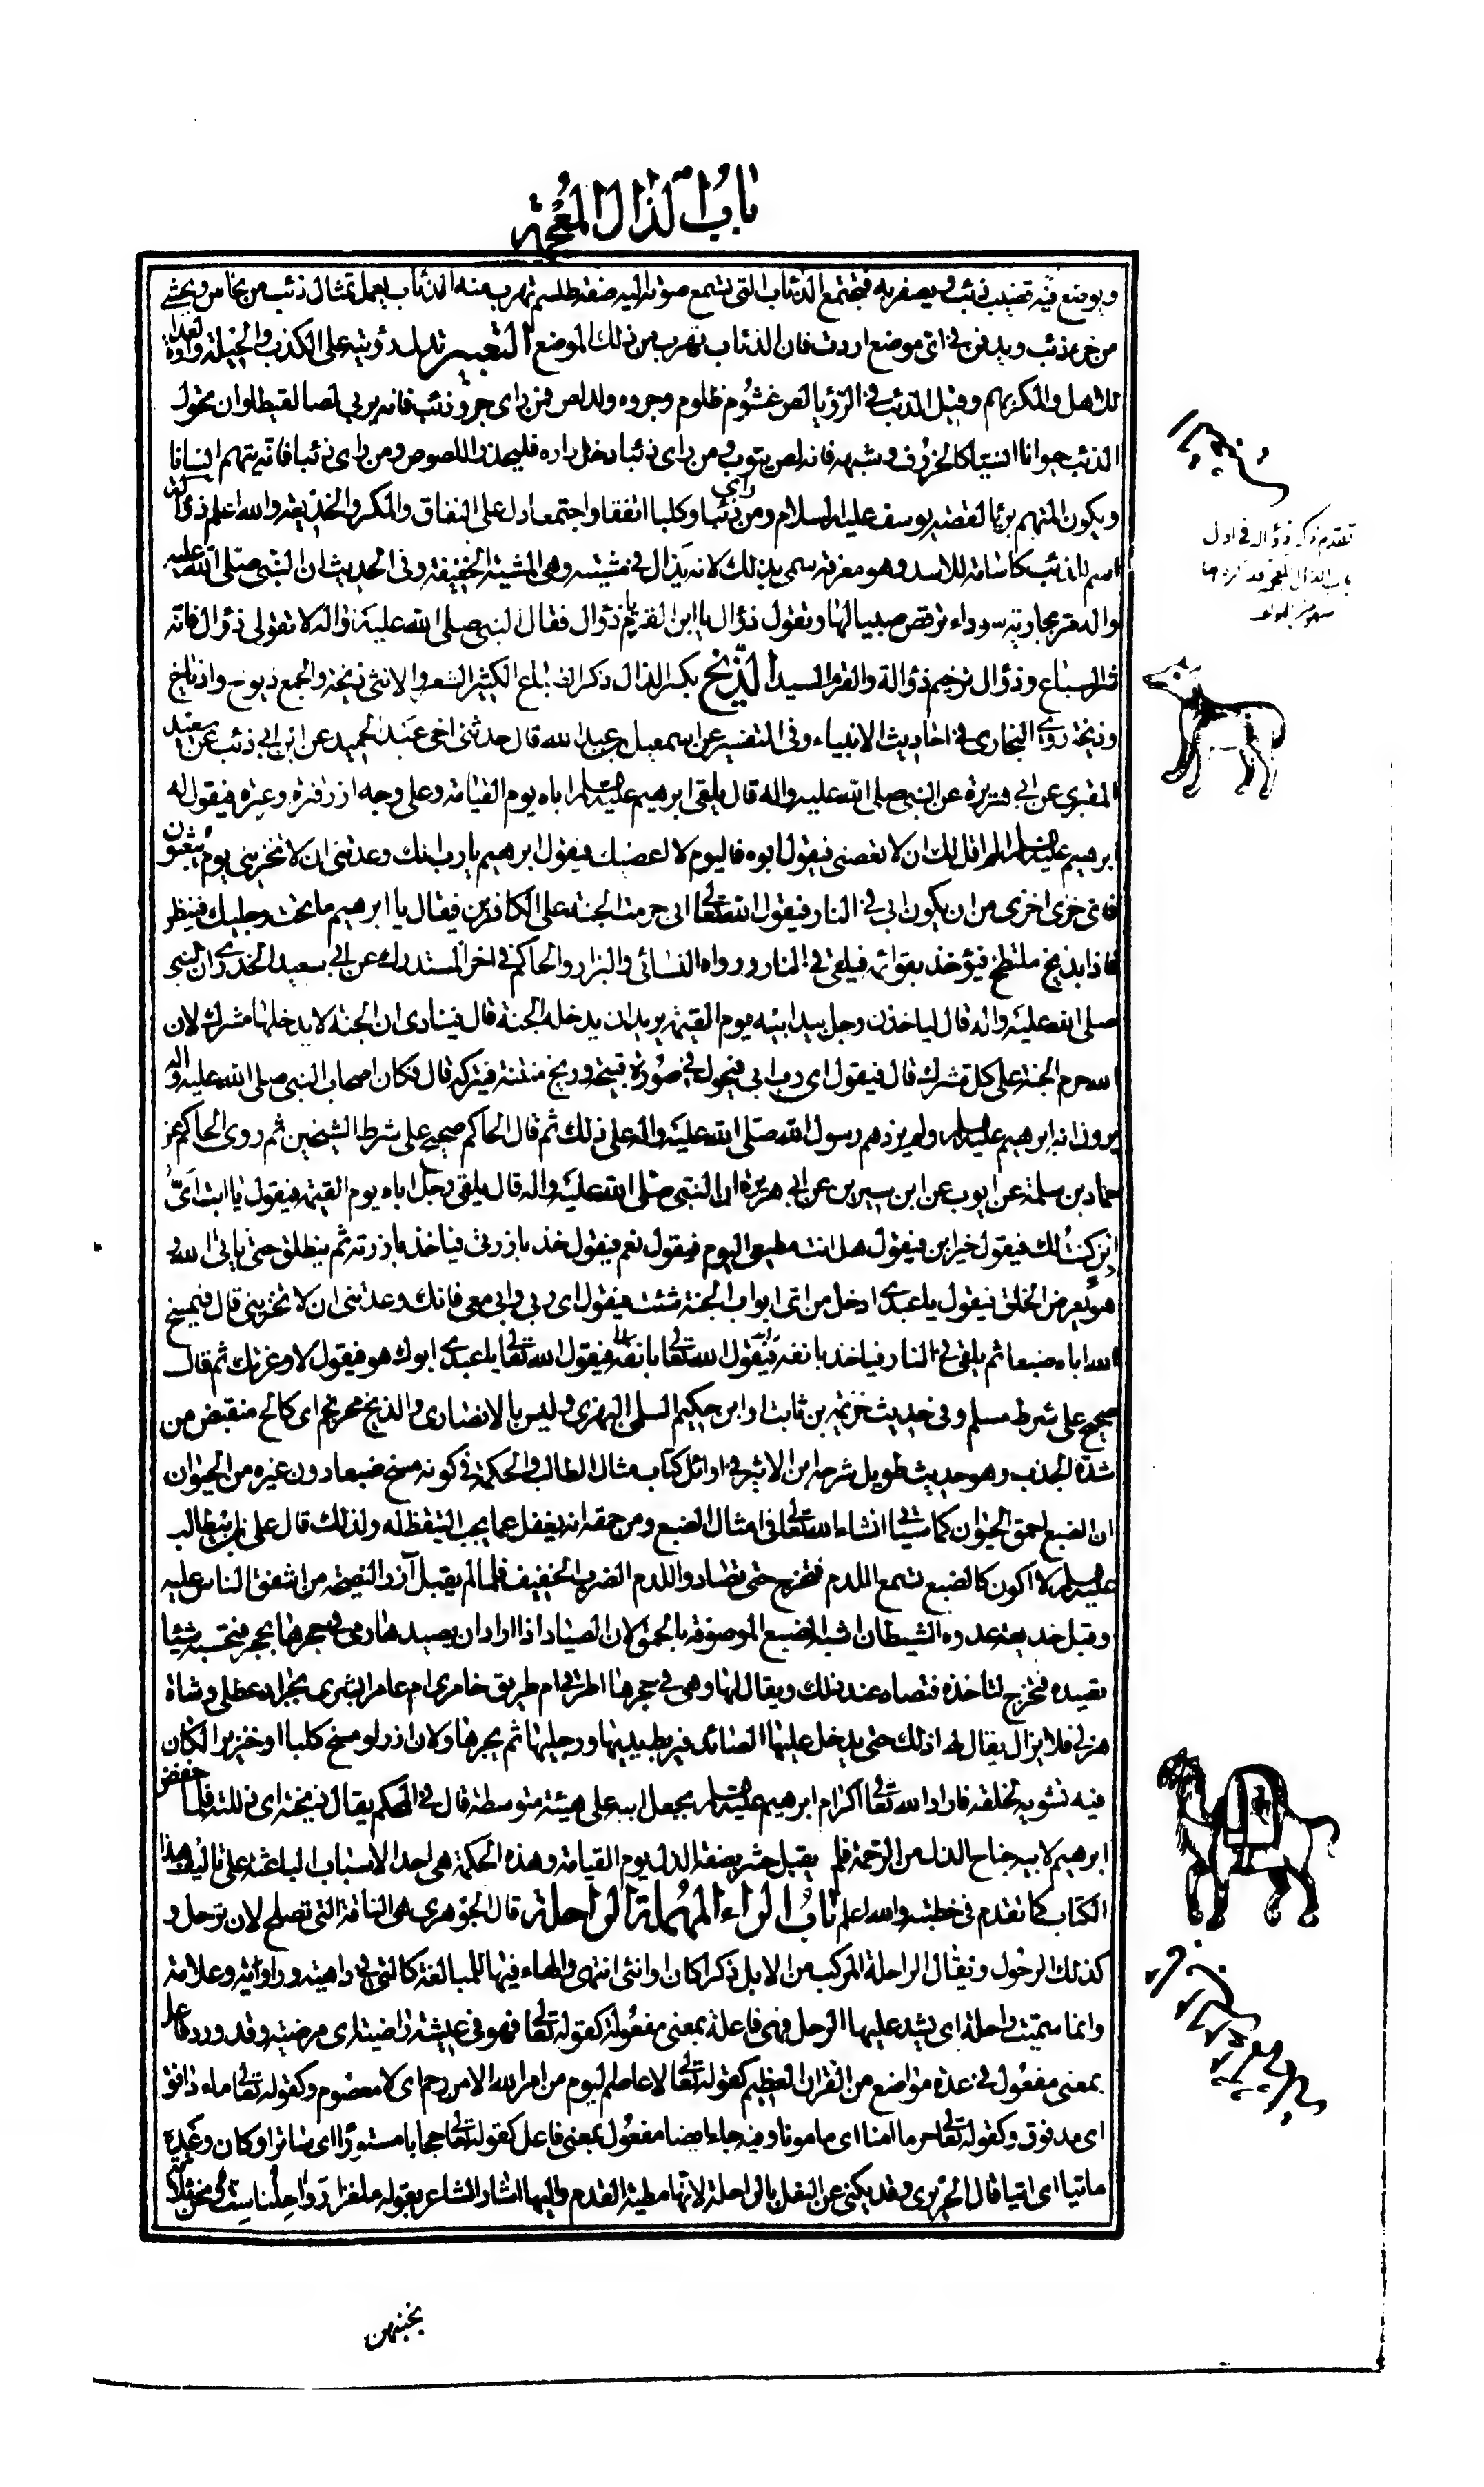 باب الذال المعجمة
ويوضع فيه قضيب ذئب ويصفر به فتجتمع الذئاب التى تسمع صوته اليه صفة طلسم تهرب منه الذئاب يعمل تمثال ذئب من نحاس ويحشى
من خرء ذئب ويدفن فى اى موضع اردت فان الذئاب تهرب من ذلك الموضع التعبير تدل رؤيته على الكذب والحيلة والعداوة
للاهل والمكر بهم وقيل الذئب فى الرؤيا لص غشوم ظلوم وجروه ولد لص فمن راى جرو ذئب فانه يربى لصا لقيطا وان تحول
الذئب حيوانا انسيا كالخروف وشبهه فانه لص يتوب ومن راى ذئبا دخل داره فليحذر اللصوص ومن راى ذئبا فانه يتهم انسانا
ويكون المتهم بريئا لقصة يوسف عليه السلام ومن راى ذئبا وكلبا اتفقا واجتمعا دل على النفاق والمكر والخديعة والله اعلم ذؤالة
اسم للذئب كاسامة للاسد وهو معرفة سمى بذلك لانه يذال فى مشيته وهى المشية الخفيفة وفى الحديث ان النبى صلى الله عليه
واله مر بجارية سوداء ترقص صبيا لها وتقول ذؤال يا ابن القرم يا ذؤال فقال النبى صلى الله عليه واله لا تقولى ذؤال فانه
شر السباع وذؤال ترخيم ذؤالة والقرم السيد الذيخ بكسر الذال ذكر الضباع الكثير الشعر والانثى ذيخة والجمع ذيوخ واذياخ
وذيخة روى البخارى فى احاديث الانبياء وفى التفسير عن اسمعيل بن عبد الله قال حدثنى اخى عبد الحميد عن ابن ابى ذئب عن سعيد
المقبرى عن ابى هريرة عن النبى صلى الله عليه واله قال يلقى ابرهيم عليه السلام اباه يوم القيامة وعلى وجه ازر قترة وغبرة فيقول له
ابرهيم عليه السلام الم اقل لك ان لا تعصنى فيقول ابوه فاليوم لا اعصيك فيقول ابرهيم يا رب انك وعدتنى ان لا تخزينى يوم يبعثون
فاى خزى اخزى من ان يكون ابى فى النار فيقول الله تعالى انى حرمت الجنة على الكافرين فيقال يا ابرهيم ما تحت رجليك فينظر
فاذا بذيخ ملتطخ فيؤخذ بقوائمه فيلقى فى النار ورواه النسائى والبزار والحاكم فى اخر المستدرك عن ابى سعيد الخدرى ان النبى
صلى الله عليه واله قال لياخذن رجل بيد ابيه يوم القيمة يريد ان يدخله الجنة قال فينادى ان الجنة لا يدخلها مشرك لان
الله حرم الجنة على كل مشرك قال فيقول اى رب ابى فيحول فى صورة قبيحة وريح منتنة فيتركه قال فكان اصحاب النبى صلى الله عليه واله
يرون انه ابرهيم عليه السلام ولم يزدهم رسول الله صلى الله عليه واله على ذلك ثم قال الحاكم صحيح على شرط الشيخين ثم روى الحاكم عن
حماد بن سلمة عن ايوب عن ابن سيرين عن ابى هريرة ان النبى صلى الله عليه واله قال يلقى رجل اباه يوم القيمة فيقول يا ابت اى
ابن كنت لك فيقول خير ابن فيقول هل انت مطيعى اليوم فيقول نعم فيقول خذ بازرتى فياخذ بازرته ثم ينطلق حتى ياتى الله و
هو يعرض الخلق فيقول يا عبدى ادخل من اى ابواب الجنة شئت فيقول اى ربى وابى معى فانك وعدتنى ان لا تخزينى قال فيمسخ
الله اباه ضبعا ثم يلقى فى النار فياخذ بانفه فيقول الله تعالى يا عبدى ابوك هو فيقول لا وعزتك ثم قال
صحيح على شرط مسلم وفى حديث خزيمة بن ثابت او ابن حكيم السلمى البهزى وليس بالانصارى والذيخ محرنجم اى كالح منقبض من
شدة الجدب وهو حديث طويل شرحه ابن الاثير فى اوائل كتاب مثال الطالب والحكمة فى كونه مسخ ضبعا دون غيره من الحيوان
ان الضبع احمق الحيوان كما سياتى انشاء الله تعالى فى امثال الضبع ومن حمقه انه يغفل عما يجب التيقظ له ولذلك قال على بن ابيطالب
عليه السلام لا اكون كالضبع تسمع اللدم فتخرج حتى تصاد واللدم الضرب الخفيف فلما لم يقبل آزر النصيحة من اشفق الناس عليه
وقبل خديعة عدوه الشيطان اشبه الضبع الموصوفة بالحمق لان الصياد اذا اراد ان يصيدها رمى فى جحرها بحجر فتحسبه شيئا
تصيده فتخرج لتاخذه فتصاد عند ذلك ويقال لها وهى فى جحرها اطرقى ام طريق خامرى ام عامر ابشرى بجراد عظلى وشاة
هزلى فلا يزال يقال لها ذلك حتى يدخل عليها الصائد فيربط يديها ورجليها ثم يجرها ولان ازر لو مسخ كلبا او خنزيرا لكان
فيه تشويه لخلقه فاراد الله تعالى اكرام ابرهيم عليه السلام بجعل ابيه على هيئة متوسطة قال فى المحكم يقال ذيخته اى ذللته فلما خفض
ابرهيم لابيه جناح الذل من الرحمة فلم يقبل حشر بصفة الذل يوم القيامة وهذه الحكمة هى احد الاسباب الباعثة على تاليف هذا
الكتاب كما تقدم فى خطبته والله اعلم باب الراء المهملة الراحلة قال الجوهرى هى الناقة التى تصلح لان ترحل و
كذلك الرحول ويقال الراحلة المركب من الابل ذكرا كان او انثى انتهى والهاء فيها للمبالغة كالتى فى داهية وراوية وعلامة
وانما سميت راحلة اى يشد عليها الرحل فهى فاعلة بمعنى مفعولة كقوله تعالى فهو فى عيشة راضية اى مرضية وقد ورد فاعل
بمعنى مفعول فى عدة مواضع من القران العظيم كقوله تعالى لا عاصم اليوم من امر الله الا من رحم اى لا معصوم وكقوله تعالى ماء دافق
اى مدفوق وكقوله تعالى حرما امنا اى مامونا وفيه جاء ايضا مفعول بمعنى فاعل كقوله تعالى حجابا مستورا اى ساترا وكان وعده
ماتيا اى اتيا قال الحريرى وقد يكنى عن النعل بالراحلة لانها مطية القدم واليها اشار الشاعر بقوله ملغزا رواحلنا ست ونحن ثلثة
تقدم ذكر ذؤاله فى اول
باب الذال المعجمة
نجنبهن